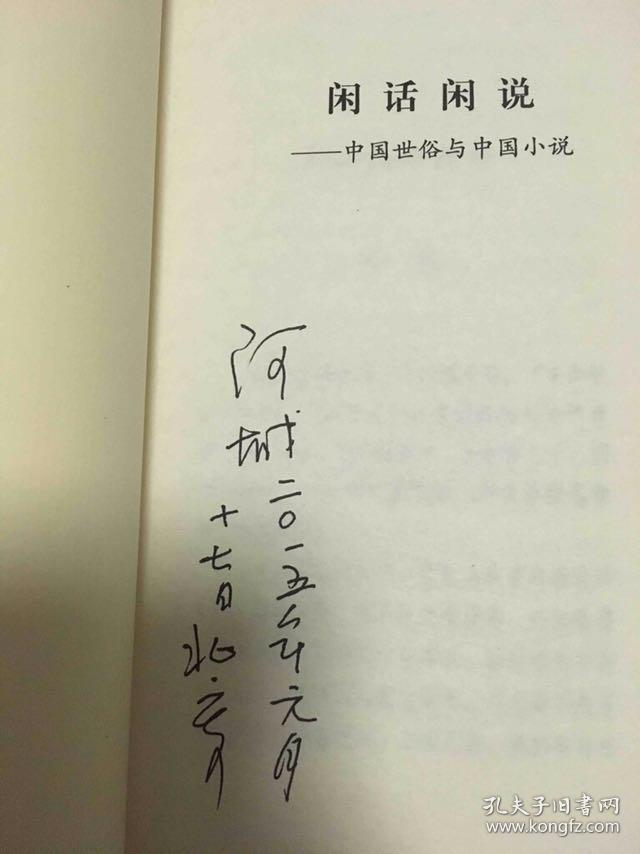 闲话闲说
——中国世俗与中国小说
阿城二〇一五年元月
十七日北京
孔夫子旧书网
www.kongfz.com